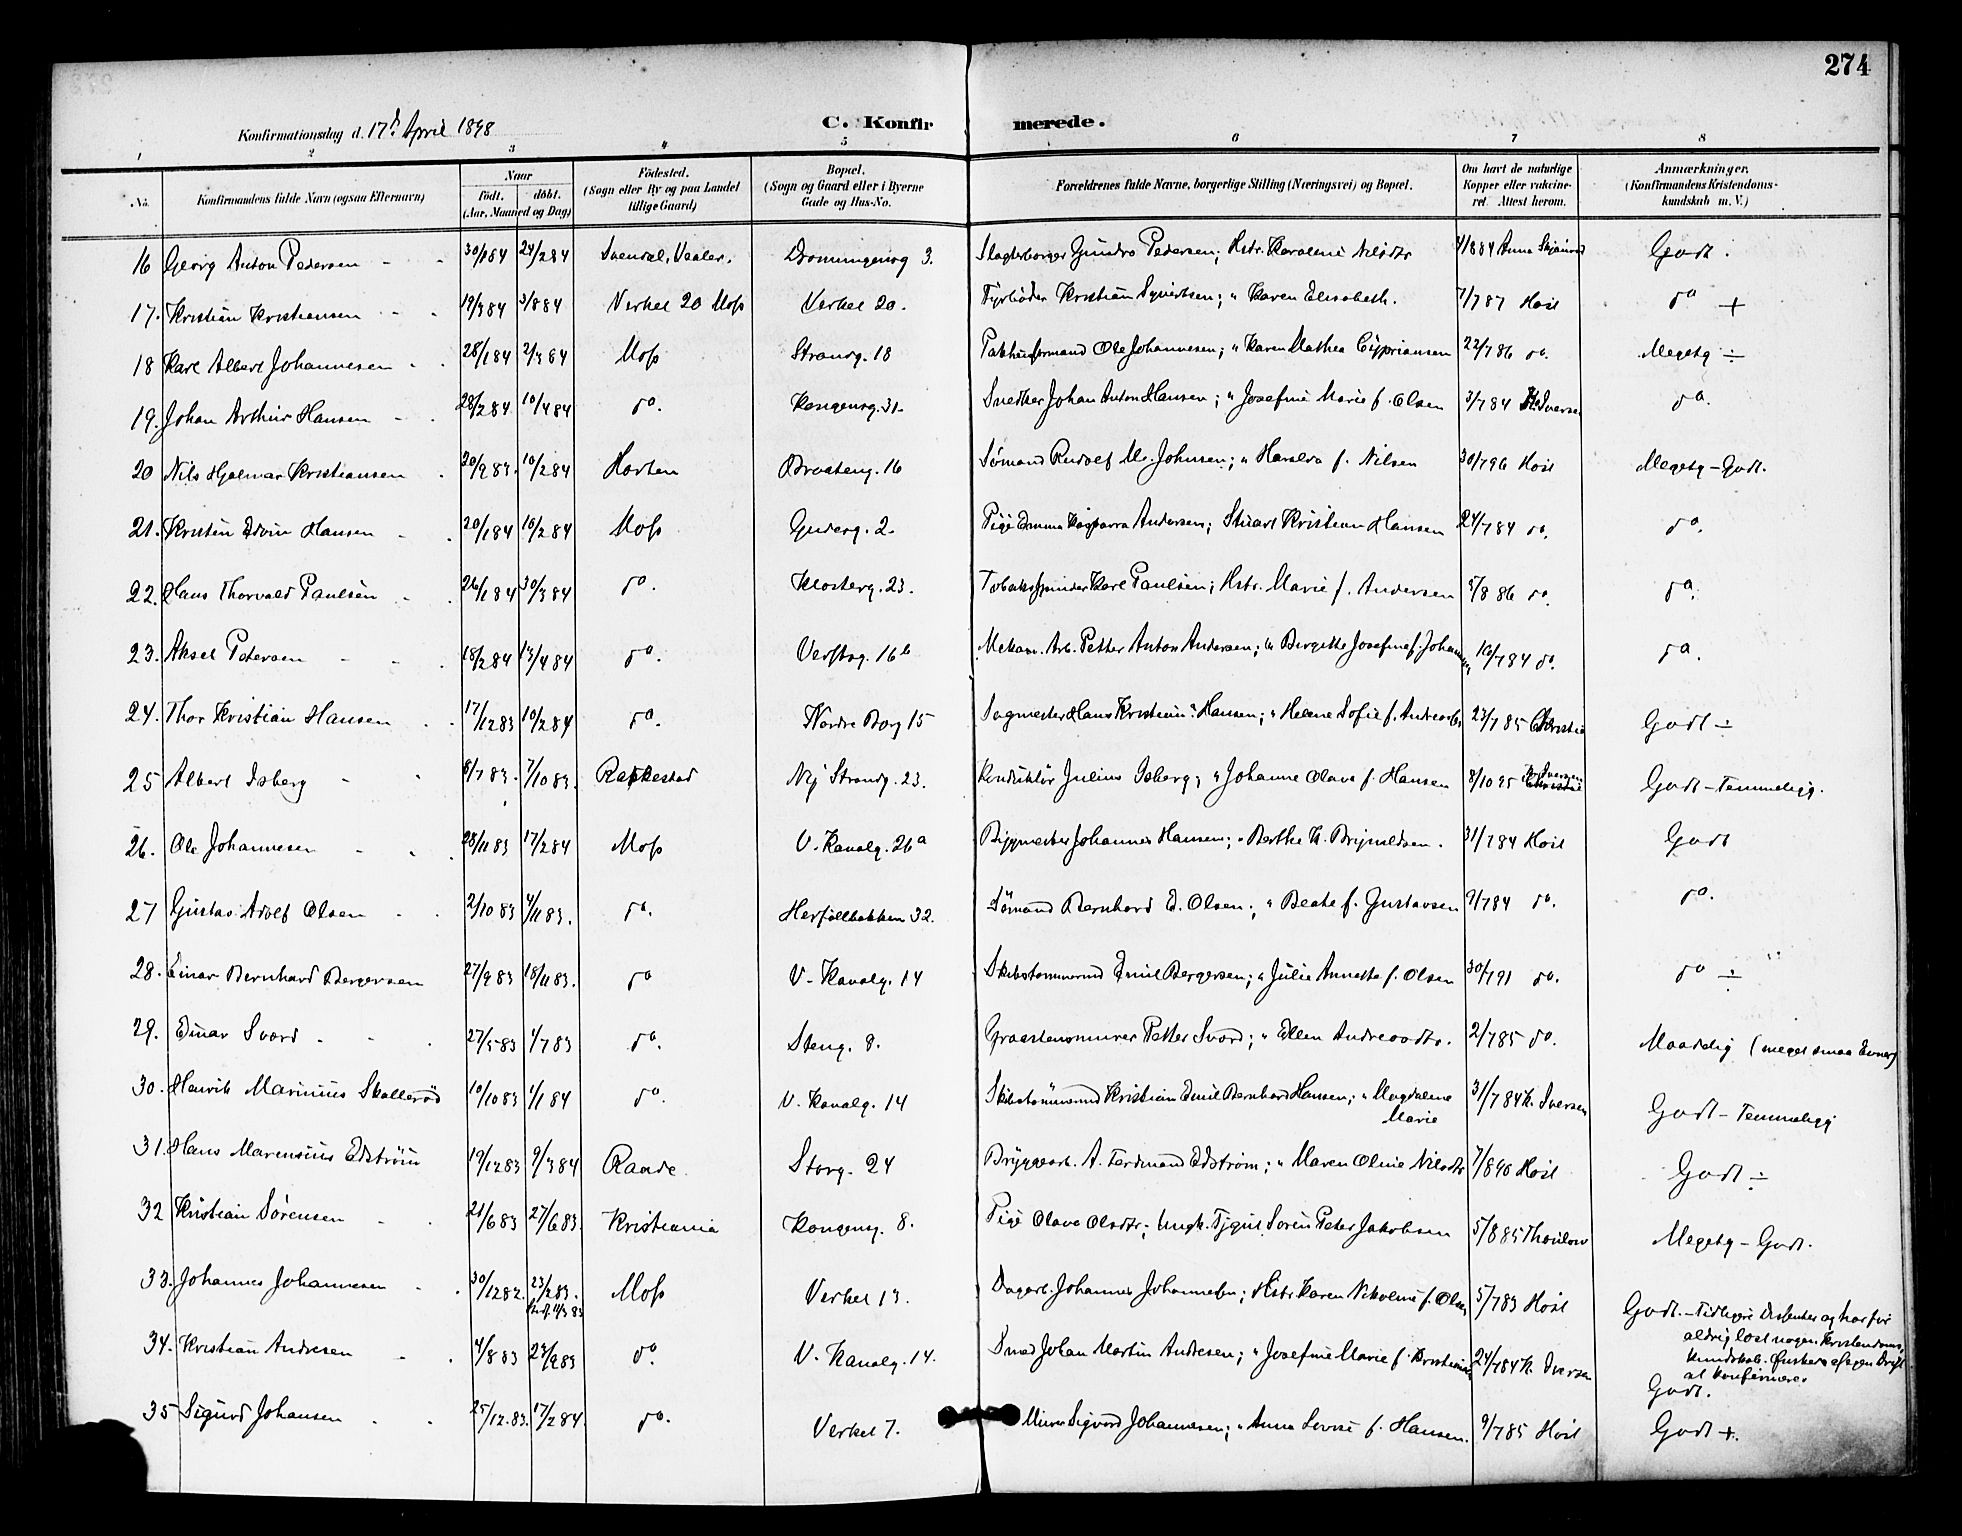 274
Konfirmationsdag d. 17d April 1898
C. Konfirmerede.
1 2 3 4 5 6 7 8
No. Konfirmandens fulde Navn (ogsaa Efternavn) Naar født. døbt. (Aar, Maaned og Dag) Födested. (Sogn eller By og paa Landet tillige Gaard) Bopæl. (Sogn og Gaard eller i Byerne Gade og Hus-No. Forældrenes fulde Navne, borgerlige Stilling (Næringsvei) og Bopæl. Om havt de naturlige Kopper eller vaccineret. Attest herom. Anmærkninger. (Konfirmandens Kristendomskundskab m. V.)
16 Georg Anton Pedersen 24/2 84 Svendal, Vaaler. 3. Pedersen; Hstr. Karoline Nilsdtr 84 Anna Godt.
17. Kristian Kristiansen 19/3 84 3/8 84 Verket 20 Moss Verket 20. Fyrbøder Kristian Syvertsen; " Karen Elisabeth. 7/7 87 Høst do +
18 Karl Albert Johannesen 28/1 84 2/3 84 Moss Strandg. 18 Ole Johannesen; " Karen Mathea Cypriansen 22/7 86 do. Megetg ÷
19. Johan Arthur Hansen 28/2 84 10/4 84 do. Kongensg. 31. Snedker Johan Anton Hansen; " Josefine Marie f. Olsen 3/7 84 Iversen do.
20 Nils Hjalmar Kristiansen 30/9 83. 10/2 84 Horten 16 Sømand Rudolf M. Johnsen; " Haralda f. Nilsen 30/7 96 Høst Megetg - Godt.
21. Kristin Edvin Hansen 20/1 84 10/2 84 Moss Gudesg. 2. Pige Emma Andersen; Stuart Kristian Hansen 24/7 84 do. do.
22. Hans Thorvald Paulsen 26/1 84 30/3 84 do. Klosterg. 23. Tobakspinder Karl Paulsen; Hstr. Marie f. Andersen /8 86 do. do.
23. Aksel Petersen 18/2 84 13/4 84 do. Verftsg. 16b Mekan. Arb. Petter Anton Andersen; " Birgitte Josefine f. Johannesen 10/7 84 do. do.
24. Thor Kristian Hansen 17/12 83 10/2 84 do. Nordre Borg 15 Sagmester Hans Kristian Hansen; " Helene Sofie f. 23/7 85 Christie Godt ÷
25 Albert Isberg 8/7 83. 7/10 83. Rakkestad Ny Strandg. 23. Konduktör Julius Isberg; " Johanne Olava f. Hansen 8/10 95 Iversen Godt - Temmeligg.
26. Ole Johannesen 28/11 83 17/2 84 Moss V. Kanalg. 26a Byggmester Johannes Hansen; " Berthe K. Brynildsen. 31/7 84 Høst Godt
27 Gustav Adolf Olsen 2/10 83 4/11 83. do. Herføllbakken 32. Sømand Bernhard E. Olsen; " Beate f. Gustavsen 9/7 84 do. do.
28. Einar Bernhard Bergersen 27/9 83 18/11 83. do V. Kanalg. 14 Skibstømmermd Emil Bergersen; " Julie Annette f. Olsen 30/7 91 do. do ÷
29. Einar Svard 27/5 83 1/7 83 do. Steng. 8. Graastensmurer Petter Svard; " Ellen Andreasdtr. 2/7 85 do. Maadelig (meget smaa Evner)
30. Henrik Marinius Skallerød 10/10 83 1/1 84 do. V. Kanalg. 14 Skibstømmermd Kristian Emil Bernhard Hansen; " Magdalene Marie 31/7 84 K. Iversen Godt - Temmeligg
31. Hans Marensius Edström 19/12 83 9/3 84 Raade. Storg. 24 Bryggearb. A. Ferdinand Edström; " Maren Oline Nilsdtr 7/8 90 Høst Godt ÷
32 Kristian Sörensen 21/6 83 27/6 83. Kristiania Kongensg. 8. Pige Olava Olsdtr; Ungk. Sören Peter Jakobsen 5/8 85 Thaulow Megetg - Godt.
33. Johannes Johannesen 30/12 82. 23/2 83. 11/3 83 Moss Verket 13. Dagarb. Johannes Johannesen; Hstr. Karen Nikoline f. Olsen 5/7 83 Høst Godt. - Tidligere Dissenter og har før aldrig læst nogen Kristendomskundskab. Ønskes af egen Drift at konfirmeres
34. Kristian Andresen 4/8 83 23/9 83 do. V. Kanalg. 14. Smed Johan Martin Andresen; " Josefine Marie f. Kristiansen 24/7 84 K. Iversen Godt.
35 Sigurd Johansen 25/12 83. 17/2 84 do. Verket 7. Murer Sigvard Johannesen; " Anna Lovise f. Hansen. 9/7 85 Høst Godt +.